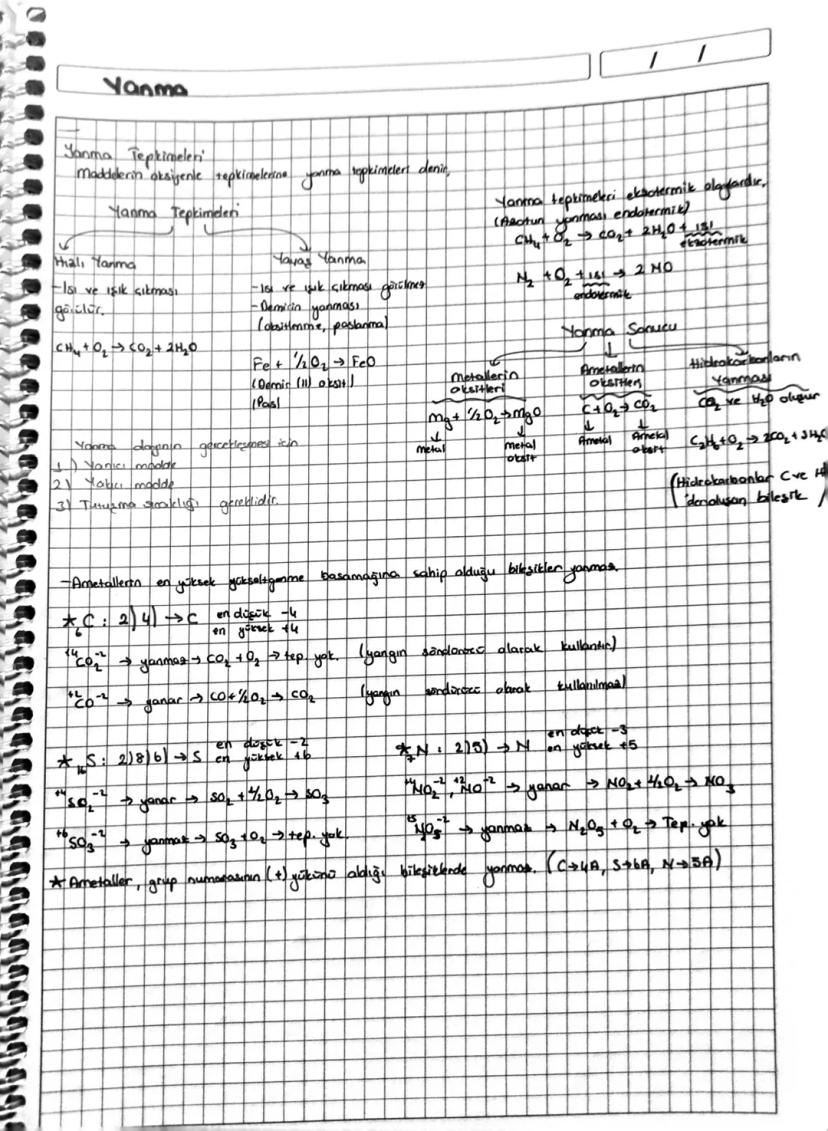 Yanma
/ /
Yanma Tepkimeleri
Maddelerin oksijenle tepkimelerine yanma tepkimeleri denir.
Yanma Tepkimeleri
Hızlı Yanma
-Isı ve ışık çıkması
görülür.
CH₄+O₂→CO₂+2H₂O
Yavaş Yanma
-Isı ve ışık çıkması görülmez
-Demirin yanması
(oksitlenme, paslanma)
Fe + ½O₂ → FeO
(Demir (II) oksit)
(Pas)
Yanma tepkimeleri ekzotermik olaylardır.
(Azotun yanması endotermik)
CH₄+O₂ → CO₂+ 2H₂O + ısı
ekzotermik
N₂ + O₂ + ısı → 2 NO
endotermik
Yanma Sonucu
Metallerin
oksitleri
Mg + ½O₂→MgO
Metal
Metal
oksit
Ametallerin
oksitleri
C+O₂→CO₂
Ametal
Ametal
oksit
Hidrokarbonların
Yanması
CO₂ ve H₂O oluşur
C₂H₆+O₂→2CO₂+3H₂O
(Hidrokarbonlar C ve H
'den oluşan bileşik)
Yanma olayının gerçekleşmesi için
1) Yanıcı madde
2) Yakıcı madde
3) Tutuşma sıcaklığı gereklidir.
-Ametallerin en yüksek yükseltgenme basamağına sahip olduğu bileşikler yanmaz.
* ₆C : 2) 4) → C en düşük -4
en yüksek +4
⁺⁴CO₂⁻² → yanmaz → CO₂ + O₂ → tep. yok. (yangın söndürücü olarak kullanılır)
⁺²CO⁻² → yanar → CO+½O₂ → CO₂ (yangın söndürücü olarak kullanılmaz)
* ₁₆S : 2)8)6) → S en düşük -2
en yüksek +6
⁺⁴SO₂⁻² → yanar → SO₂ + ½O₂ → SO₃
⁺⁶SO₃⁻² → yanmaz → SO₃ + O₂ → tep. yok.
* ₇N : 2)5) → N en düşük -3
en yüksek +5
⁺⁴NO₂⁻², ⁺²NO⁻² → yanar → NO₂ + ½O₂ → NO₃
⁺⁵NO₃⁻² → yanmaz → N₂O₅ + O₂ → Tep. yok
* Ametaller, grup numarasının (+) yükünü aldığı bileşiklerde yanmaz. (C→4A, S→6A, N→5A)